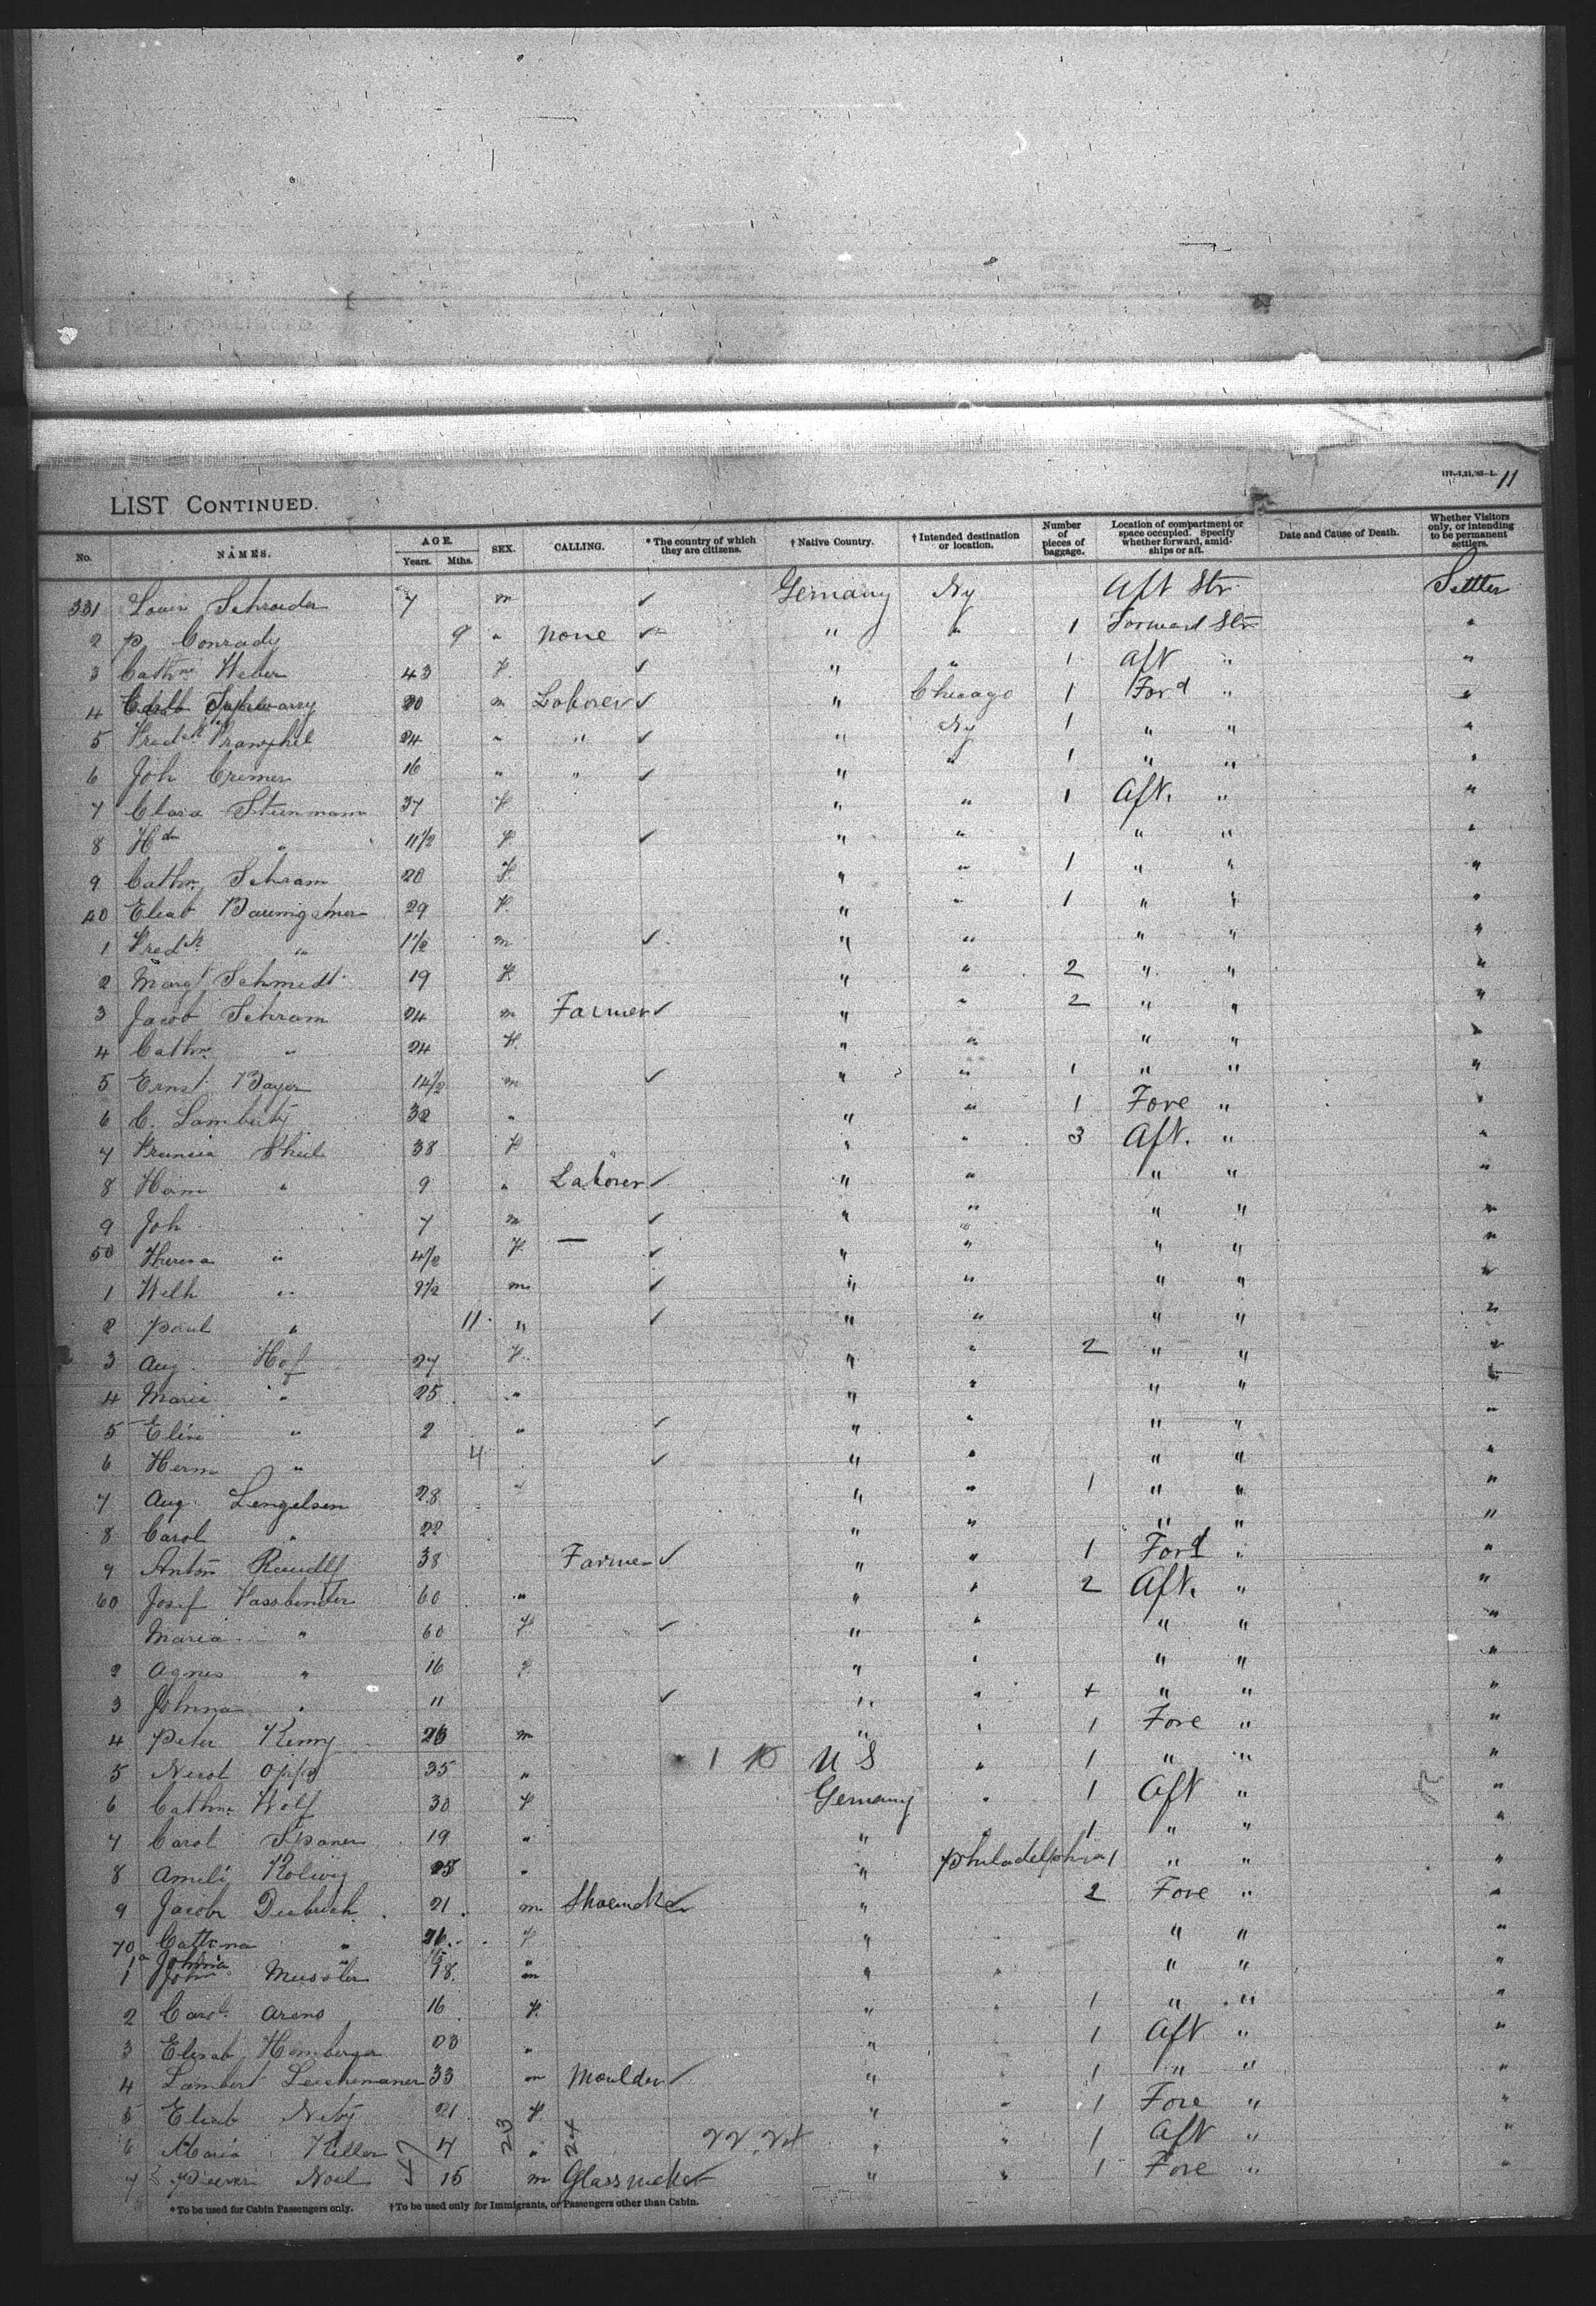 177-7,21,'87-L. 11
LIST CONTINUED.
No. NAMES. AGE. Years. Mths. SEX. CALLING. *The country of which they are citizens. †Native Country. †Intended destination or location. Number of pieces of baggage. Location of compartment or space occupied. Specify whether forward, amidships or aft. Date and Cause of Death. Whether Visitors only, or intending to be permanent settlers.
331 Louis Schroeder 7 m ✓ Germany Ny Aft Str Settler
2 P. Conrady 9 " None ✓ " " 1 Forward Str "
3 Cathne Weber 43 F ✓ " " 1 Aft " "
4 20 m Laborer ✓ " Chicago 1 Ford " "
5 Fredk 24 " " ✓ " Ny 1 " " "
6 Joh Cremer 16 " " ✓ " " 1 " " "
7 Clara Steinmann 37 F " " 1 Aft. " "
8 " 11½ F ✓ " " " " "
9 Cathn Schram 20 F. " " 1 " " "
40 Elisab 29 F. " " 1 " " "
1 Fredk " 1½ m ✓ " " " " "
2 Margt Schmidt 19 F " " 2 " " "
3 Jacob Schram 24 m Farmer ✓ " " 2 " " "
4 Cathn " 24 F. " " " " "
5 Ernst Bayer 14½ m ✓ " " 1 " " "
6 C. Lamberty 32 " " " 1 Fore " "
7 38 F " " 3 Aft. " "
8 Ham " 9 " Laborer ✓ " " " " "
9 Joh 7 m ✓ " " " " "
50 Theresa " 4½ F. — ✓ " " " " "
1 Wilh " 2½ m ✓ " " " " "
2 Paul " 11 " ✓ " " " " "
3 Aug. Hof 27 F. " " 2 " " "
4 Marie " 25 " " " " " "
5 Elise " 2 " ✓ " " " " "
6 Herm " 4 ✓ " " " " "
7 Aug. Lengelsen 28 " " " 1 " " "
8 Carol " 22 " " " " "
9 Anton 38 Farmer ✓ " " 1 Ford " "
60 Josef Fassbender 60 " " " 2 Aft. " "
Maria " 60 F ✓ " " " " "
2 Agnes " 16 F " " " " "
3 Johnna " 11 ✓ " " + " " "
4 Peter 26 m " " 1 Fore " "
5 35 " 1 U S " 1 " " "
6 Cathne Wolf 30 F Germany " 1 Aft " "
7 Carol Spaner 19 " " " 1 " " "
8 Kolwig 25 " " Philadelphia 1 " " "
9 Jacob 21 m Shoemaker ✓ " 2 Fore " "
70 Cathrna " 26 F " " " " "
1a Johnna " "
1 Joh Mussler 18 m " " " " "
2 Carol Arens 16 F. " " 1 " " "
3 Elisab Hamberger 23 " " 1 Aft " "
4 Lambert 33 m Moulder ✓ " " 1 " " "
5 Elisab 21 F " " 1 Fore " "
6 Maria Keller 4 " " " 1 Aft " "
7 Noel 15 m Glassmaker " " 1 Fore " "
23 24
*To be used for Cabin Passengers only. †To be used only for Immigrants, or Passengers other than Cabin.